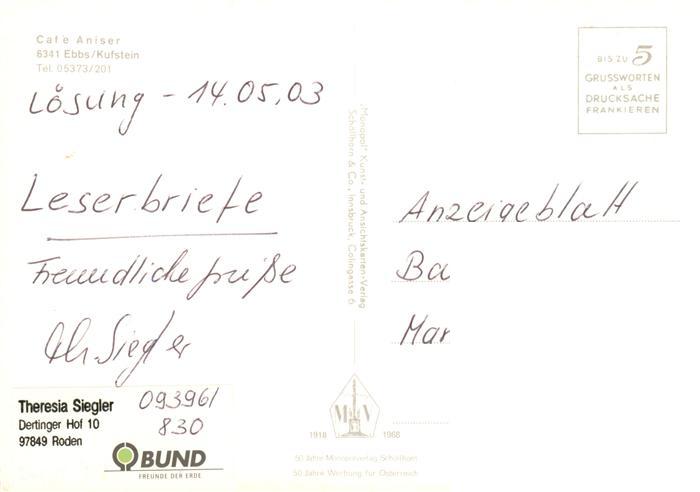 Café Aniser
6341 Ebbs/Kufstein
Tel. 05373/201
Lösung - 14.05.03
Leserbriefe
Freundliche Grüße
Th. Siegler
Theresia Siegler
Dertinger Hof 10
97849 Roden
09396/
830
BUND
FREUNDE DER ERDE
"Monopol" Kunst- und Ansichtskarten-Verlag
Schöllhorn & Co., Innsbruck, Colingasse 6
BIS ZU 5
GRUSSWORTEN
ALS
DRUCKSACHE
FRANKIEREN
Anzeigeblatt
Ba
Mar
M V
1918 1968
50 Jahre Monopolverlag Schöllhorn
50 Jahre Werbung für Österreich